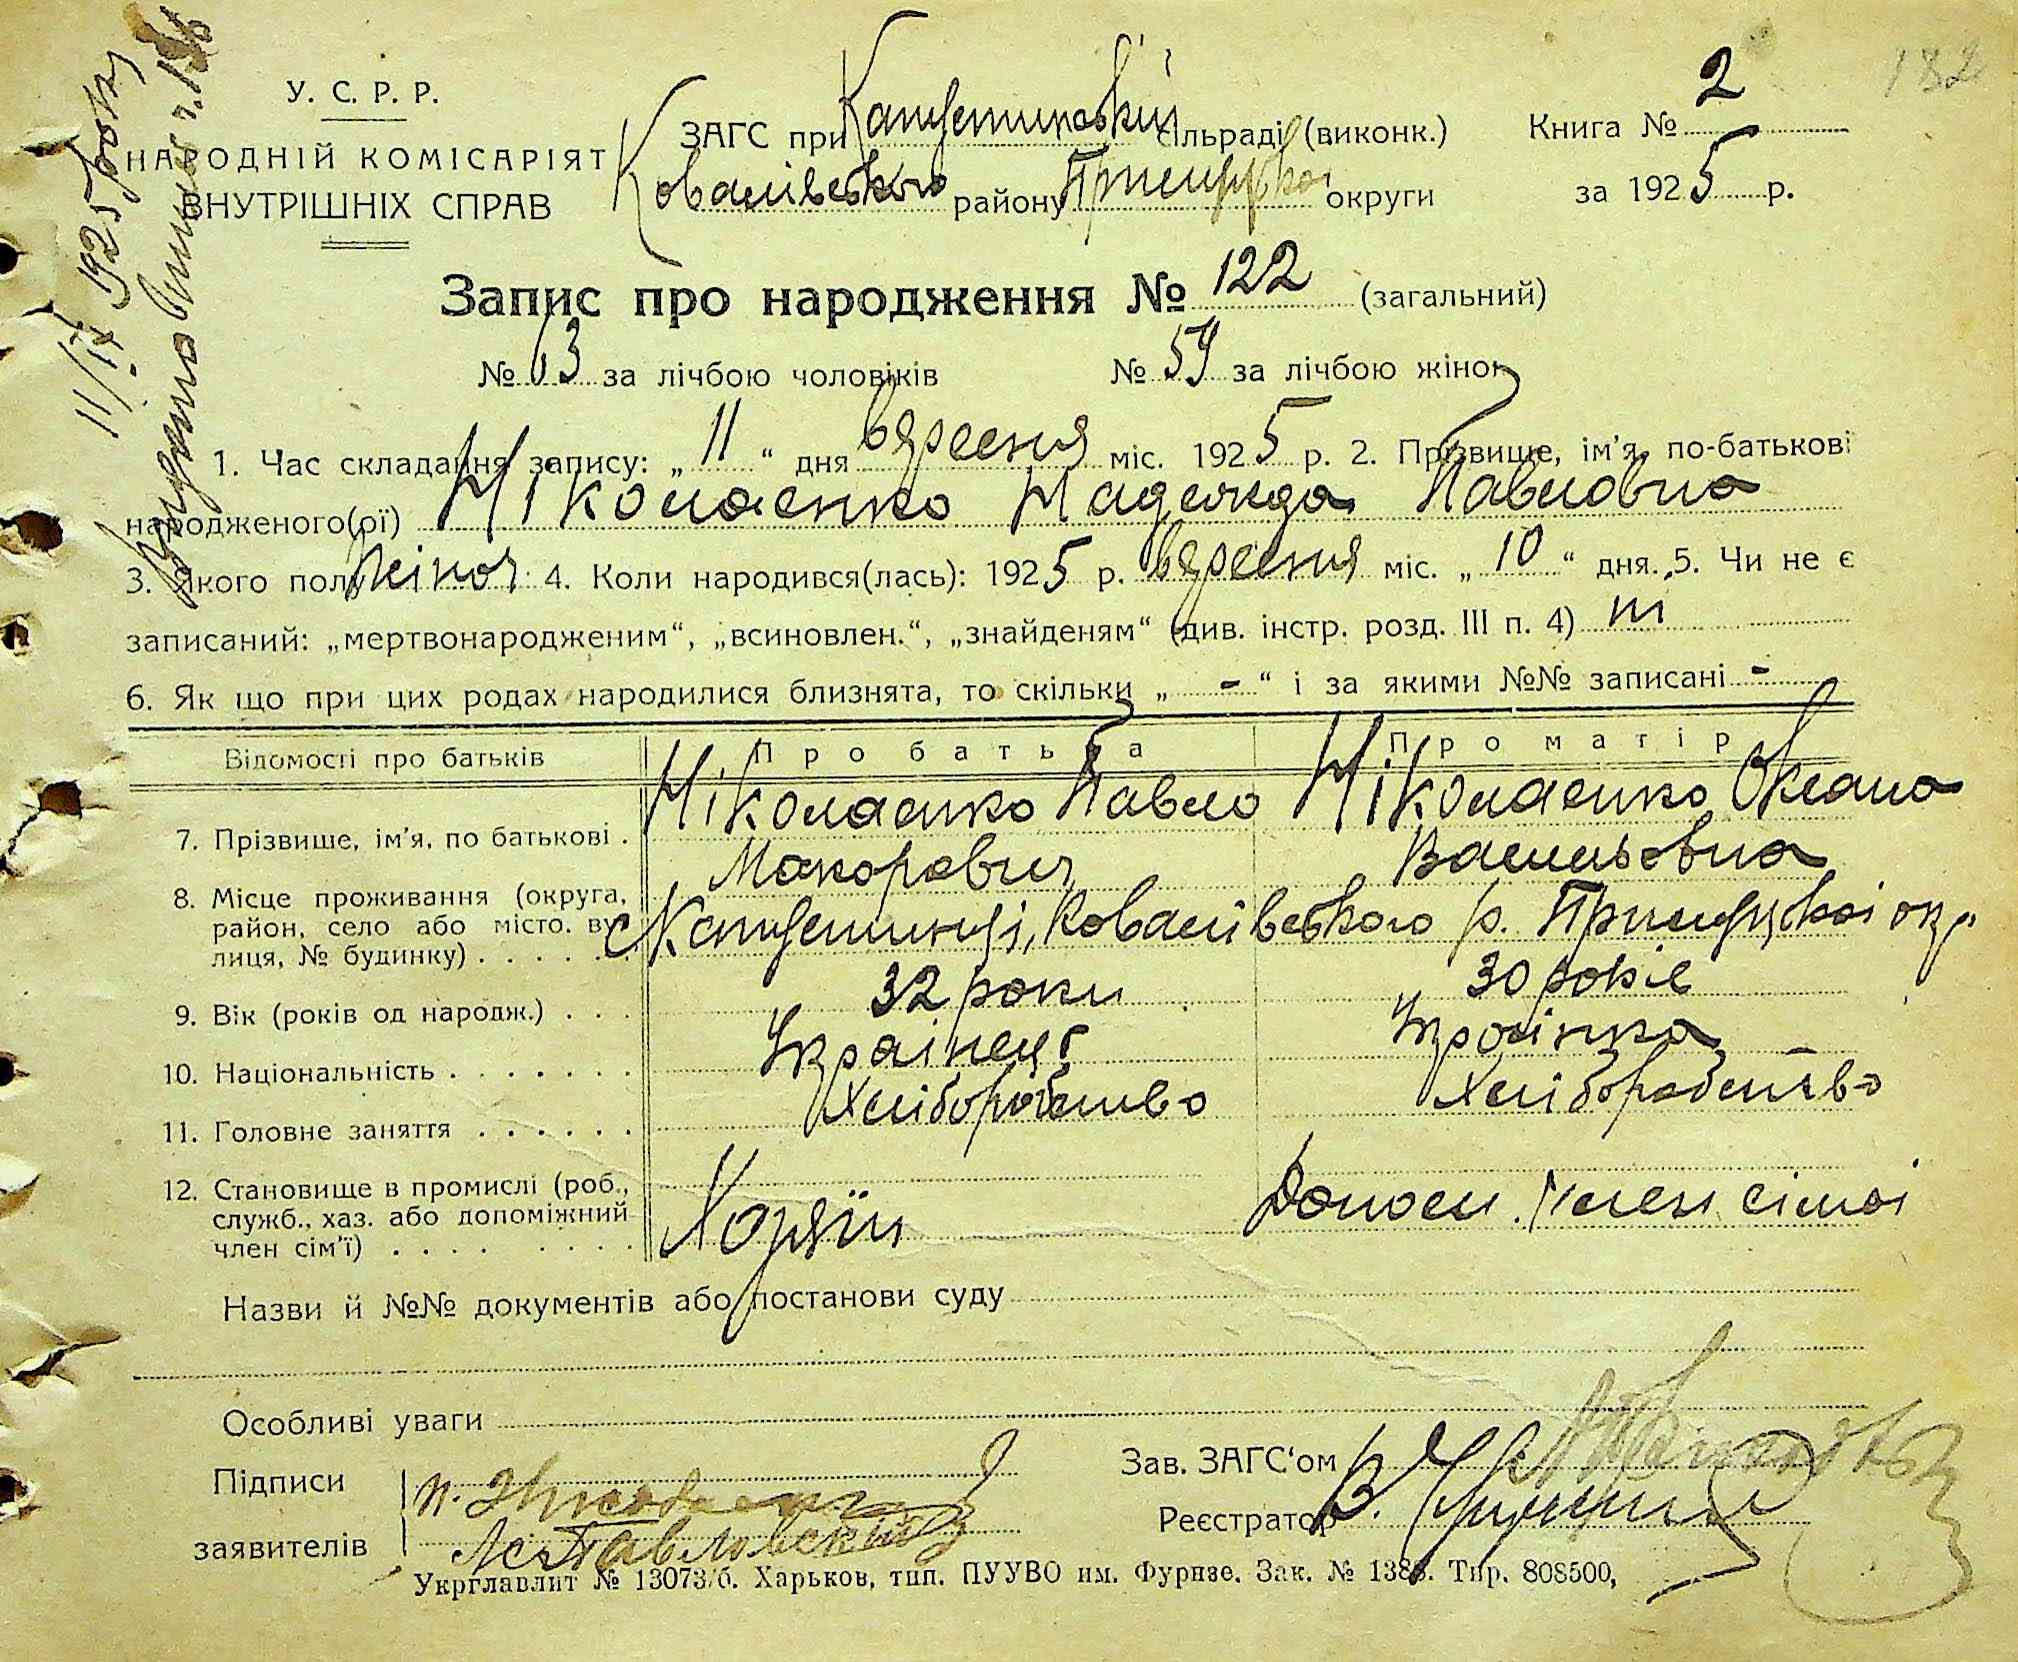 182
У. С. Р. Р.
НАРОДНІЙ КОМІСАРІЯТ
ВНУТРІШНІХ СПРАВ
ЗАГС при сільраді (виконк.)
Ковалівського району Прилуцької округи
Книга № 2
за 1925 р.
11/IX 1925 року
Видано
Запис про народження № 122 (загальний)
№ 63 за лічбою чоловіків № 59 за лічбою жінок
1. Час складання запису: „ 11 “ дня вересня міс. 1925 р. 2. Прізвище, ім'я, по-батькові
народженого(ої) Ніколаенко Надежда Павловна
3. Якого полу жіноч 4. Коли народився(лась): 1925 р. вересня міс. „ 10 “ дня. 5. Чи не є
записаний: „мертвонародженим“, „всиновлен.“, „знайденям“ (див. інстр. розд. III п. 4) ні
6. Як що при цих родах народилися близнята, то скільки „ - “ і за якими №№ записані -
Відомості про батьків Про батька Про матір
7. Прізвище, ім'я, по батькові . Ніколаенко Павло Ніколаенко
Макорович Васильовна
8. Місце проживання (округа,
район, село або місто, ву-
лиця, № будинку) . . . . . . Ковалівського р. Прилуцкоі окр.
9. Вік (років од народж.) . . . 32 роки 30 років
10. Національність . . . . . . . Украінець Украінка
11. Головне заняття . . . . . . Хліборобство Хліборобство
12. Становище в промислі (роб.,
служб., хаз. або допоміжний
член сім'ї) . . . . . . . . Хазяїн Допом. член сімоі
Назви й №№ документів або постанови суду
Особливі уваги
Підписи
заявителів
Зав. ЗАГС'ом
Реєстратор
Укрглавлит № 13073/б. Харьков, тип. ПУУВО им. Фрунзе. Зак. № 1388. Тир. 808500,